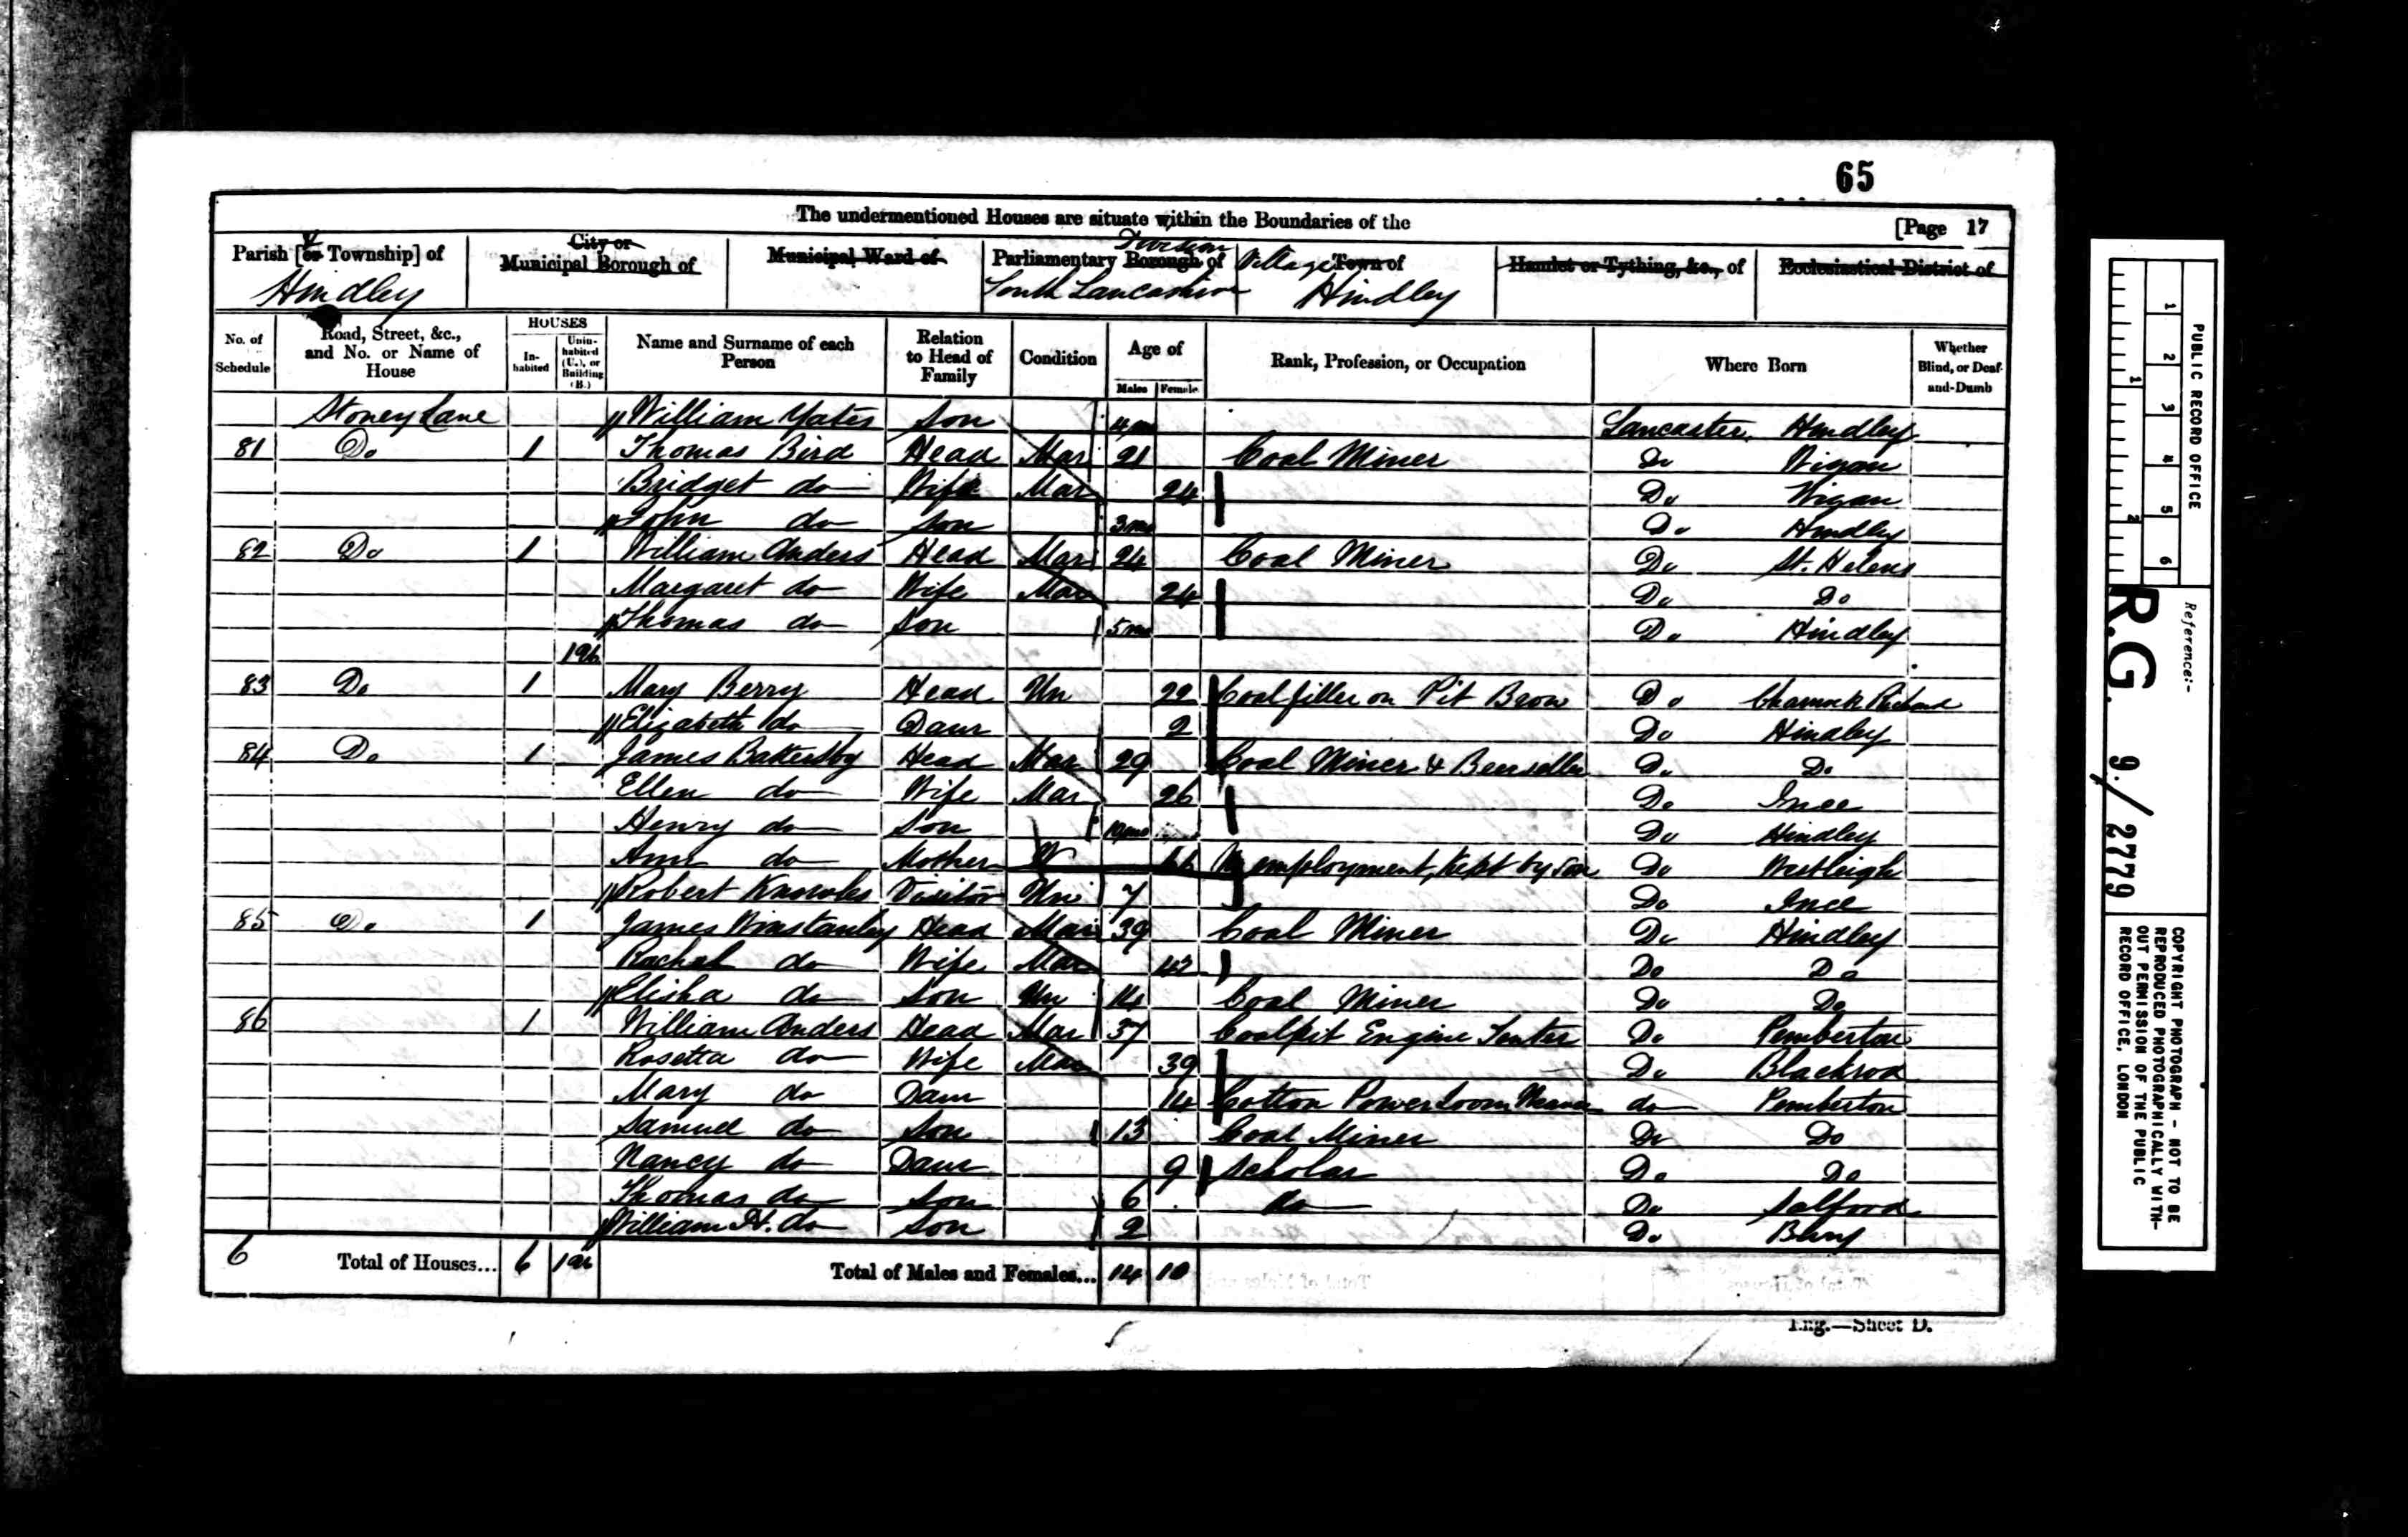 65
The undermentioned Houses are situate within the Boundaries of the [Page 17
Parish [or Township] of Hindley City or Municipal Borough of Municipal Ward of Parliamentary Borough of Division South Lancashire Village Town of Hindley Hamlet or Tything, &c., of Ecclesiastical District of
No. of Schedule Road, Street, &c., and No. or Name of House HOUSES Inhabited Uninhabited (U.), or Building (B.) Name and Surname of each Person Relation to Head of Family Condition Age of Males Females Rank, Profession, or Occupation Where Born Whether Blind, or Deaf-and-Dumb
Stoney Lane William Yates Son 4 mo Lancaster Hindley
81 Do 1 Thomas Bird Head Mar 21 Coal Miner Do Wigan
Bridget do Wife Mar 24 Do Wigan
John do Son 3 mo Do Hindley
82 Do 1 William Anders Head Mar 24 Coal Miner Do St. Helens
Margaret do Wife Mar 24 Do Do
Thomas do Son 5 mo Do Hindley
83 Do 1 Mary Berry Head Un 22 Coal filler on Pit Brow Do Charnock Richard
Elizabeth do Daur 2 Do Hindley
84 Do 1 James Battersby Head Mar 29 Coal Miner & Beerseller Do Do
Ellen do Wife Mar 26 Do Ince
Henry do Son 10 mo Do Hindley
Ann do Mother W 66 employment, kept by son Do Westleigh
Robert Knowles Visitor Un 7 Do Ince
85 Do 1 James Winstanley Head Mar 39 Coal Miner Do Hindley
Rachel do Wife Mar 42 Do Do
Elisha do Son Un 14 Coal Miner Do Do
86 1 William Anders Head Mar 37 Coalpit Engine Tenter Do Pemberton
Rosetta do Wife Mar 39 Do Blackrod
Mary do Daur 14 Cotton Powerloom Weaver do Pemberton
Samuel do Son 13 Coal Miner Do Do
Nancy do Daur 9 Scholar Do Do
Thomas do Son 6 do Do Salford
William H. do Son 2 Do Bury
6 Total of Houses... 6 Total of Males and Females... 14 10
Eng.—Sheet D.
PUBLIC RECORD OFFICE
1 2 3 4 5 6
1 2
Reference:-
R.G. 9/2779
COPYRIGHT PHOTOGRAPH - NOT TO BE
REPRODUCED PHOTOGRAPHICALLY WITH-
OUT PERMISSION OF THE PUBLIC
RECORD OFFICE, LONDON